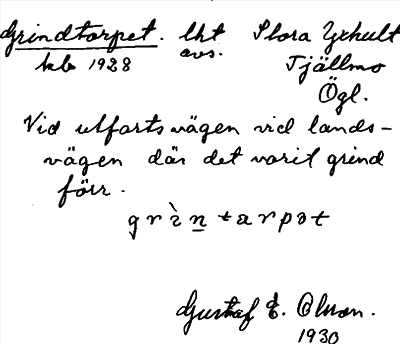 Grindtorpet. lht Stora Yxhult
kb 1928 avs. Tjällmo
Ögl.
Vid utfartsvägen vid lands-
vägen där det varit grind
förr.
grὶn̲tarpət
Gustaf E. Olsson.
1930